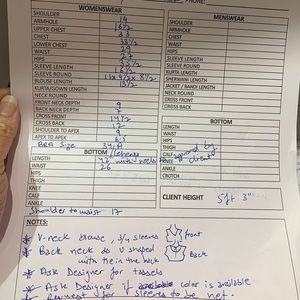 PHONE:
WOMENSWEAR
SHOULDER 14
ARMHOLE 16½
UPPER CHEST 33
CHEST
LOWER CHEST 33½
WAIST
HIPS
SLEEVE LENGTH
SLEEVE ROUND
BLOUSE LENGTH 13½
NECK ROUND
FRONT NECK DEPTH 9
BACK NECK DEPTH 7
CROSS FRONT 14½
CROSS BACK 12
SHOULDER TO APEX 9
APEX TO APEX 6.5
BRA Size 34,A
BOTTOM /Lehenga
LENGTH 42" with heels
WAIST 26
HIPS
THIGH
KNEE
CALF
ANKLE
Shoulder to waist 17
MENSWEAR
SHOULDER
ARMHOLE
CHEST
WAIST
HIPS
SLEEVE LENGTH
KURTA LENGTH
SHERWANI LENGTH
JACKET / BANDI LENGTH
NECK ROUND
CROSS FRONT
CROSS BACK
BOTTOM
LENGTH
WAIST
HIPS
THIGH
CALF
KNEE
ANKLE
CROTCH
CLIENT HEIGHT 5ft 3"
NOTES:
* V-neck blouse, 3/4 sleeves front
* Back neck is U shaped
with tie in the back Back
* Ask Designer for tassels
* Ask Designer if color is available
* Request for sleeves to be net.